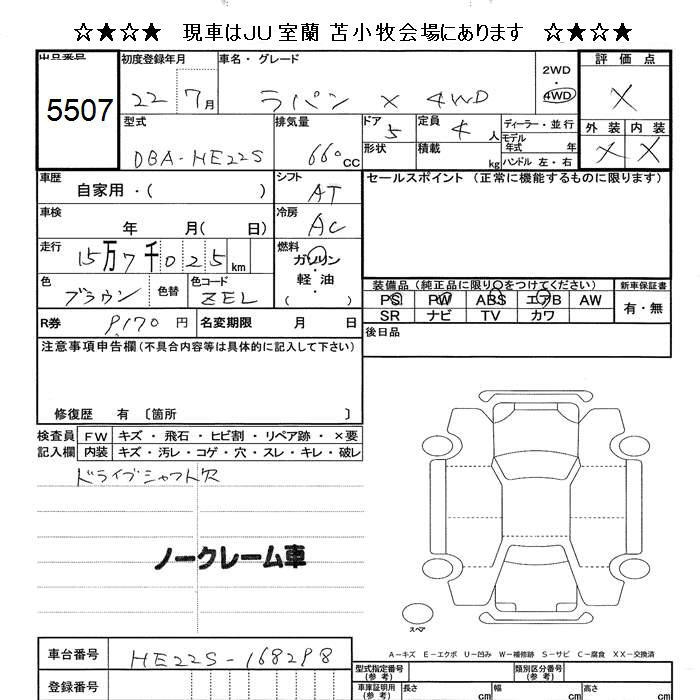 ☆★☆★ 現車はJU室蘭 苫小牧会場にあります ☆★☆★
出品番号 初度登録年月 車名・グレード 2WD 4WD 評価点
5507 22 7月 ラパン X 4WD X
型式 排気量 ドア 定員 ディーラー・並行 外装 内装
DBA-HE22S 660cc 5 4人 モデル年式 年 X X
形状 積載 kg ハンドル 左・右
車歴 自家用・( ) シフト AT セールスポイント (正常に機能するものに限ります)
車検 年 月( 日) 冷房 AC
走行 15万7千025km 燃料 ガソリン・軽油・( )
色 ブラウン 色替 色コード ZEL 装備品 (純正品に限り○をつけてください) 新車保証書
PS PW ABS エアB AW 有・無
SR ナビ TV カワ
R券 9,170円 名変期限 月 日 後日品
注意事項申告欄(不具合内容等は具体的に記入して下さい)
修復歴 有 〔箇所 〕
検査員 FW キズ・飛石・ヒビ割・リペア跡・×要
記入欄 内装 キズ・汚レ・コゲ・穴・スレ・キレ・破レ
ドライブシャフト欠
ノークレーム車
スペア
A-キズ E-エクボ U-凹み W-補修跡 S-サビ C-腐食 XX-交換済
車台番号 HE22S-168298 型式指定番号(参考) 類別区分番号(参考)
登録番号 車庫証明用(参考) 長さ cm 幅 cm 高さ cm